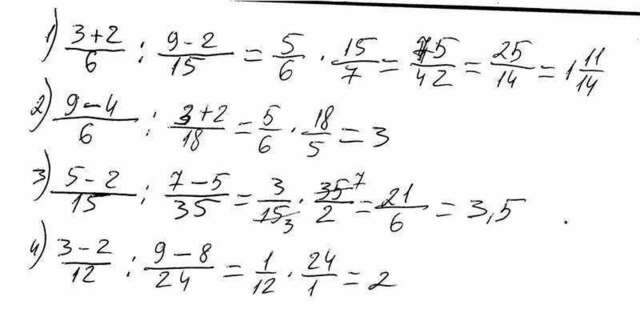 1) (3+2)/6 : (9-2)/15 = 5/6 · 15/7 = 75/42 = 25/14 = 1 11/14
2) (9-4)/6 : (3+2)/18 = 5/6 · 18/5 = 3
3) (5-2)/15 : (7-5)/35 = 3/15 3 · 35 7/2 = 21/6 = 3,5
4) (3-2)/12 : (9-8)/24 = 1/12 · 24/1 = 2